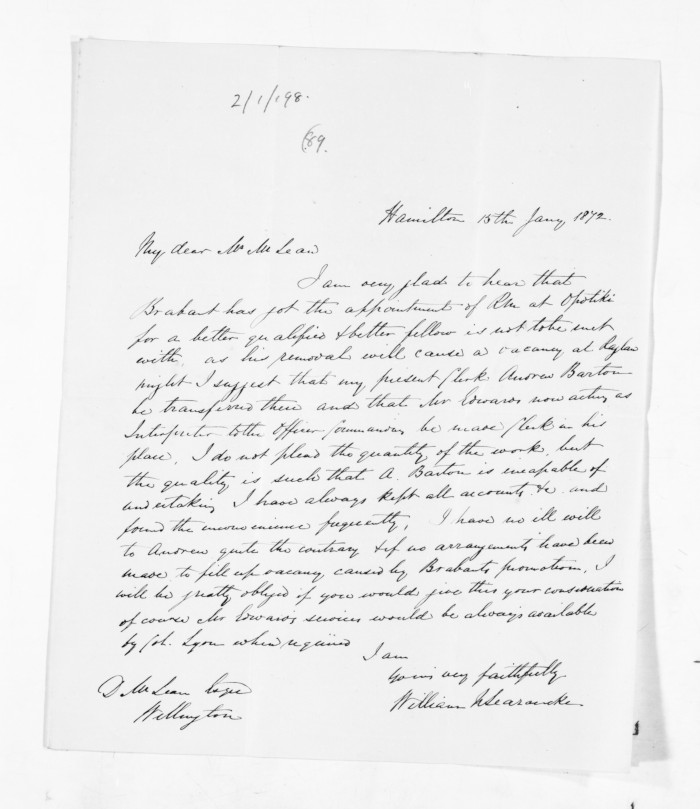 2/1/198.
(89.
Hamilton 15th Jany, 1872.
My dear Mr McLean
I am very glad to hear that
Brabart has got the appointment of RM at Opotiki
for a better qualified & better fellow is not to be met
with, as his removal will cause a vacancy at Raglan
might I suggest that my present Clerk Andrew Barton
be transferred there and that Mr Edwards now acting as
Interpreter to the Officer Commanding be made Clerk in his
place. I do not plead the quantity of the work, but
the quality is such that A. Barton is incapable of
undertaking I have always kept all accounts &c and
found the inconvenience frequently. I have no ill will
to Andrew quite the contrary & if no arrangements have been
made to fill up vacancy caused by Brabarts promotion, I
will be greatly obliged if you would give this your consideration
of course Mr Edwards services would be always available
by Col. Lyon when required
I am
yours very faithfully
William N Searancke
D McLean Esqre
Wellington